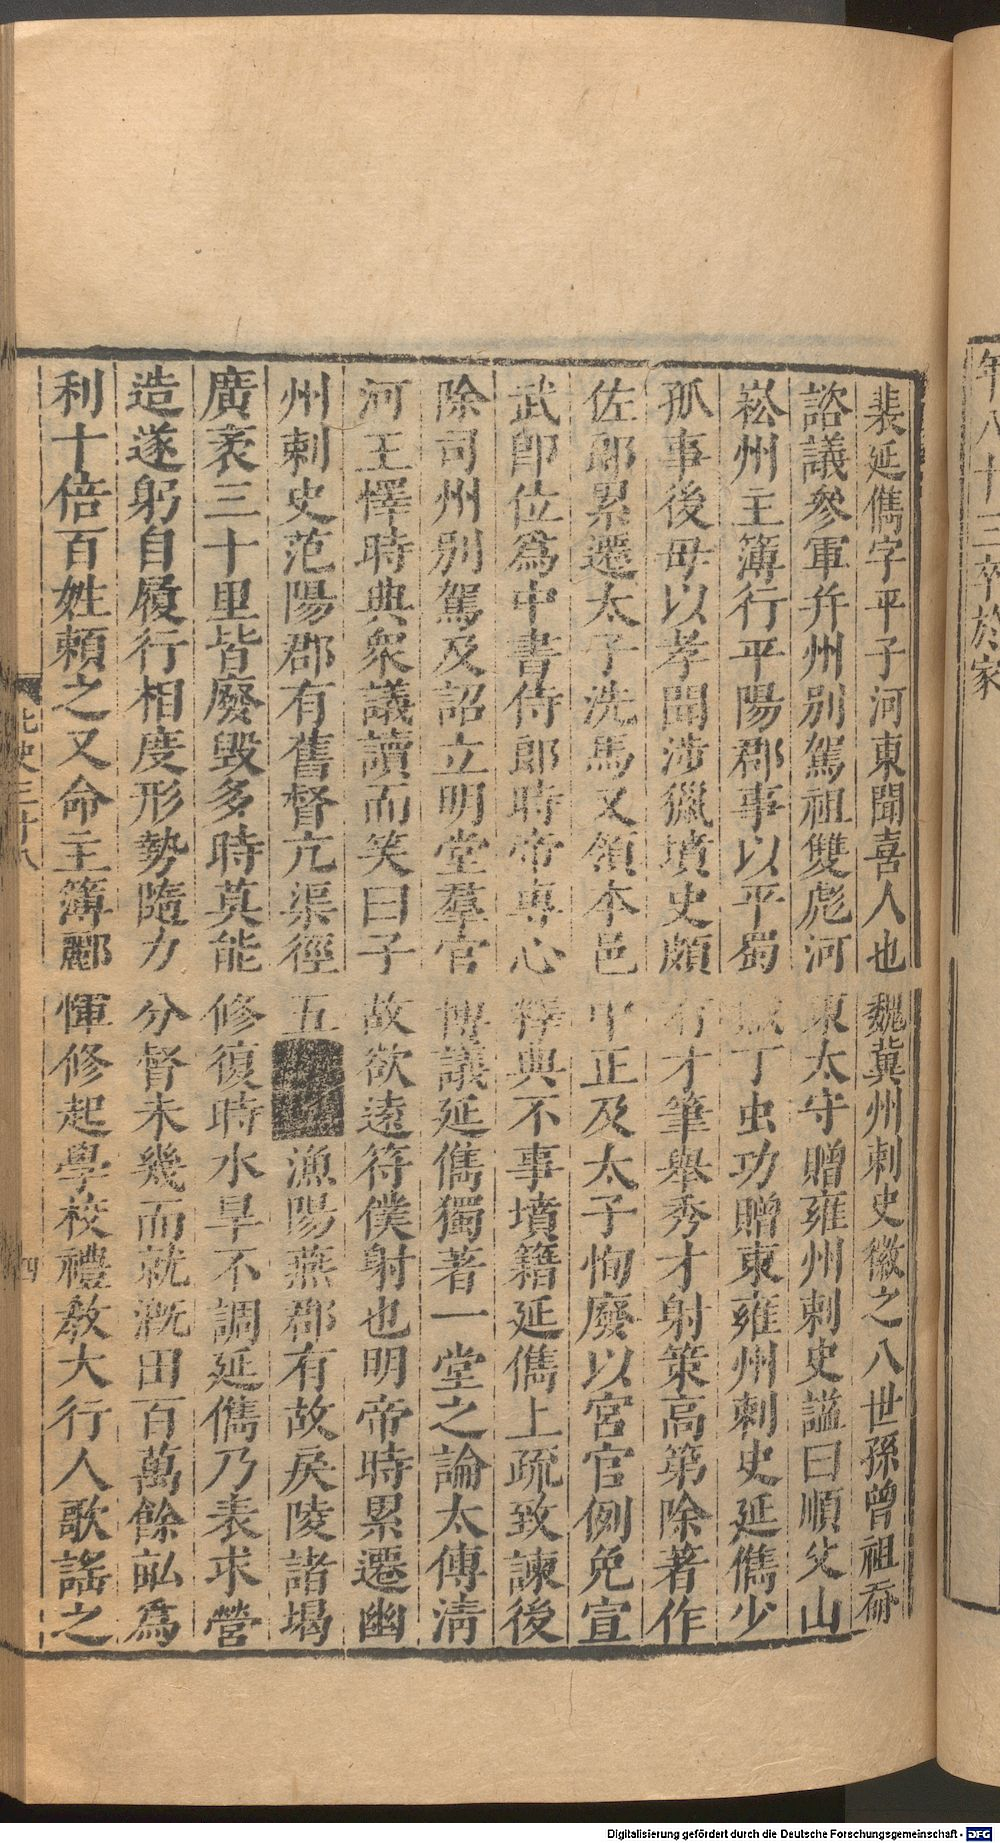 年八十三卒於家
裴延儁字平子河東聞喜人也魏冀州刺史徽之八世孫曾祖奣
諮議參軍幷州別駕祖雙彪河東太守贈雍州刺史謚曰順父山
崧州主簿行平陽郡事以平蜀賊丁虫功贈東雍州刺史延儁少
孤事後母以孝聞涉獵墳史頗有才筆舉秀才射策高第除著作
佐郎累遷太子洗馬又領本邑中正及太子恂廢以宮官例免宣
武即位爲中書侍郎時帝專心釋典不事墳籍延儁上疏致諫後
除司州別駕及詔立明堂羣官博議延儁獨著一堂之論太傅清
河王懌時典衆議讀而笑曰子故欲遠符僕射也明帝時累遷幽
州刺史范陽郡有舊督亢渠徑五漁陽燕郡有故戾陵諸堨
廣袤三十里皆廢毀多時莫能修復時水旱不調延儁乃表求營
造遂躬自履行相度形勢隨力分督未幾而就漑田百萬餘畝爲
利十倍百姓賴之又命主簿酈惲修起學校禮敎大行人歌謠之
北史三十八
四
Digitalisierung gefördert durch die Deutsche Forschungsgemeinschaft - DFG